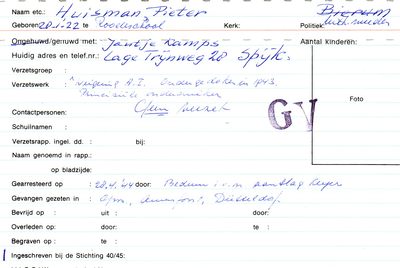 Naam etc.: Huisman, Pieter Bierum
Geboren: 20-4-22 te Roodeschool Kerk: Politiek:
Ongehuwd/gehuwd met: Jantje Kamps Aantal kinderen:
Huidig adres en telef.nr.: Lage Trijnweg 28 Spijk.
Verzetsgroep :
Verzetswerk : weigering A.I. Ondergedoken in 1943.
Principiële onderduiker
Geen verzet
Contactpersonen:
GV
Foto
Schuilnaam :
Verzetsrapp. ingel. dd. : bij:
Naam genoemd in rapp.:
op bladzijde:
Gearresteerd op : 20.4.'44 door: Bedum i.v.m. aanslag
Gevangen gezeten in : Düsseldorf
Bevrijd op : uit : door:
Overleden op: te : door:
Begraven op : te :
Ingeschreven bij de Stichting 40/45: